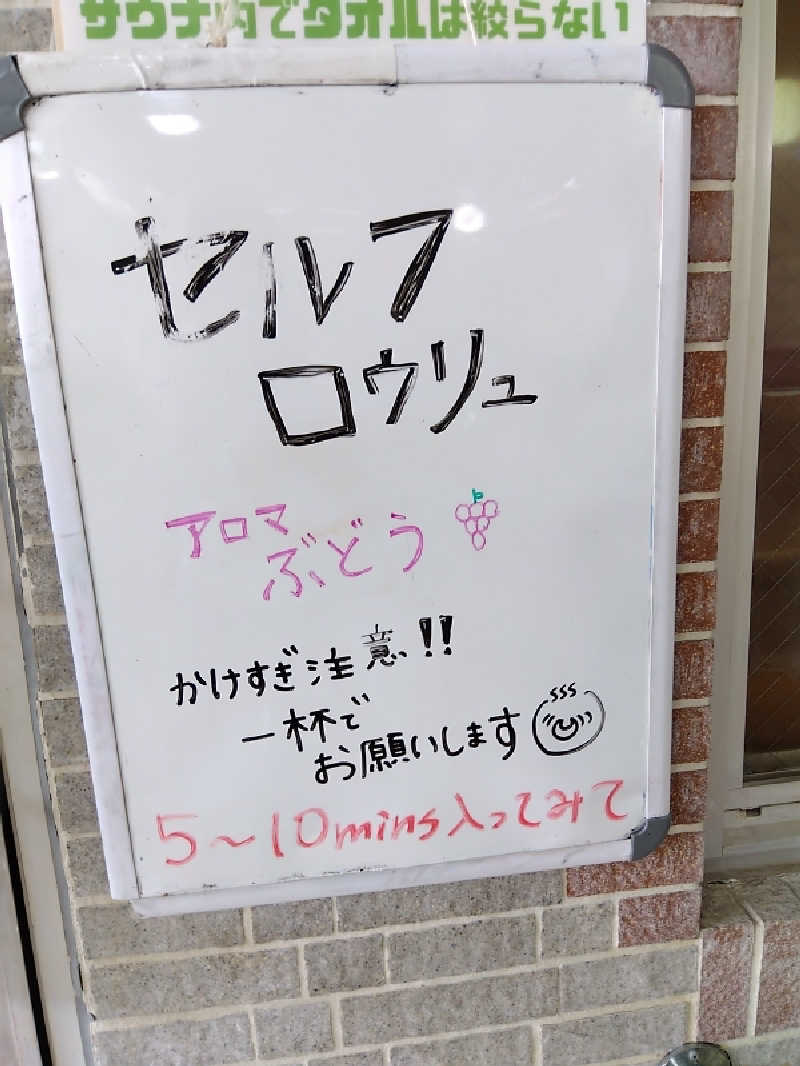 サウナ内でタオルは絞らない
セルフ
ロウリュ
アロマ
ぶどう
かけすぎ注意!!
一杯で
お願いします
5〜10mins入ってみて